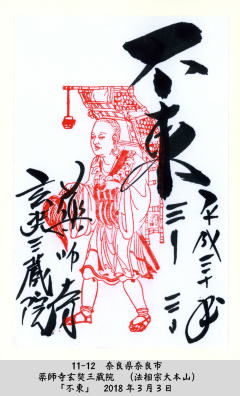 不東
平成三十年
三月三日
薬師寺
玄奘三蔵院
11-12　奈良県奈良市
薬師寺玄奘三蔵院　（法相宗大本山）
「不東」　2018年3月3日